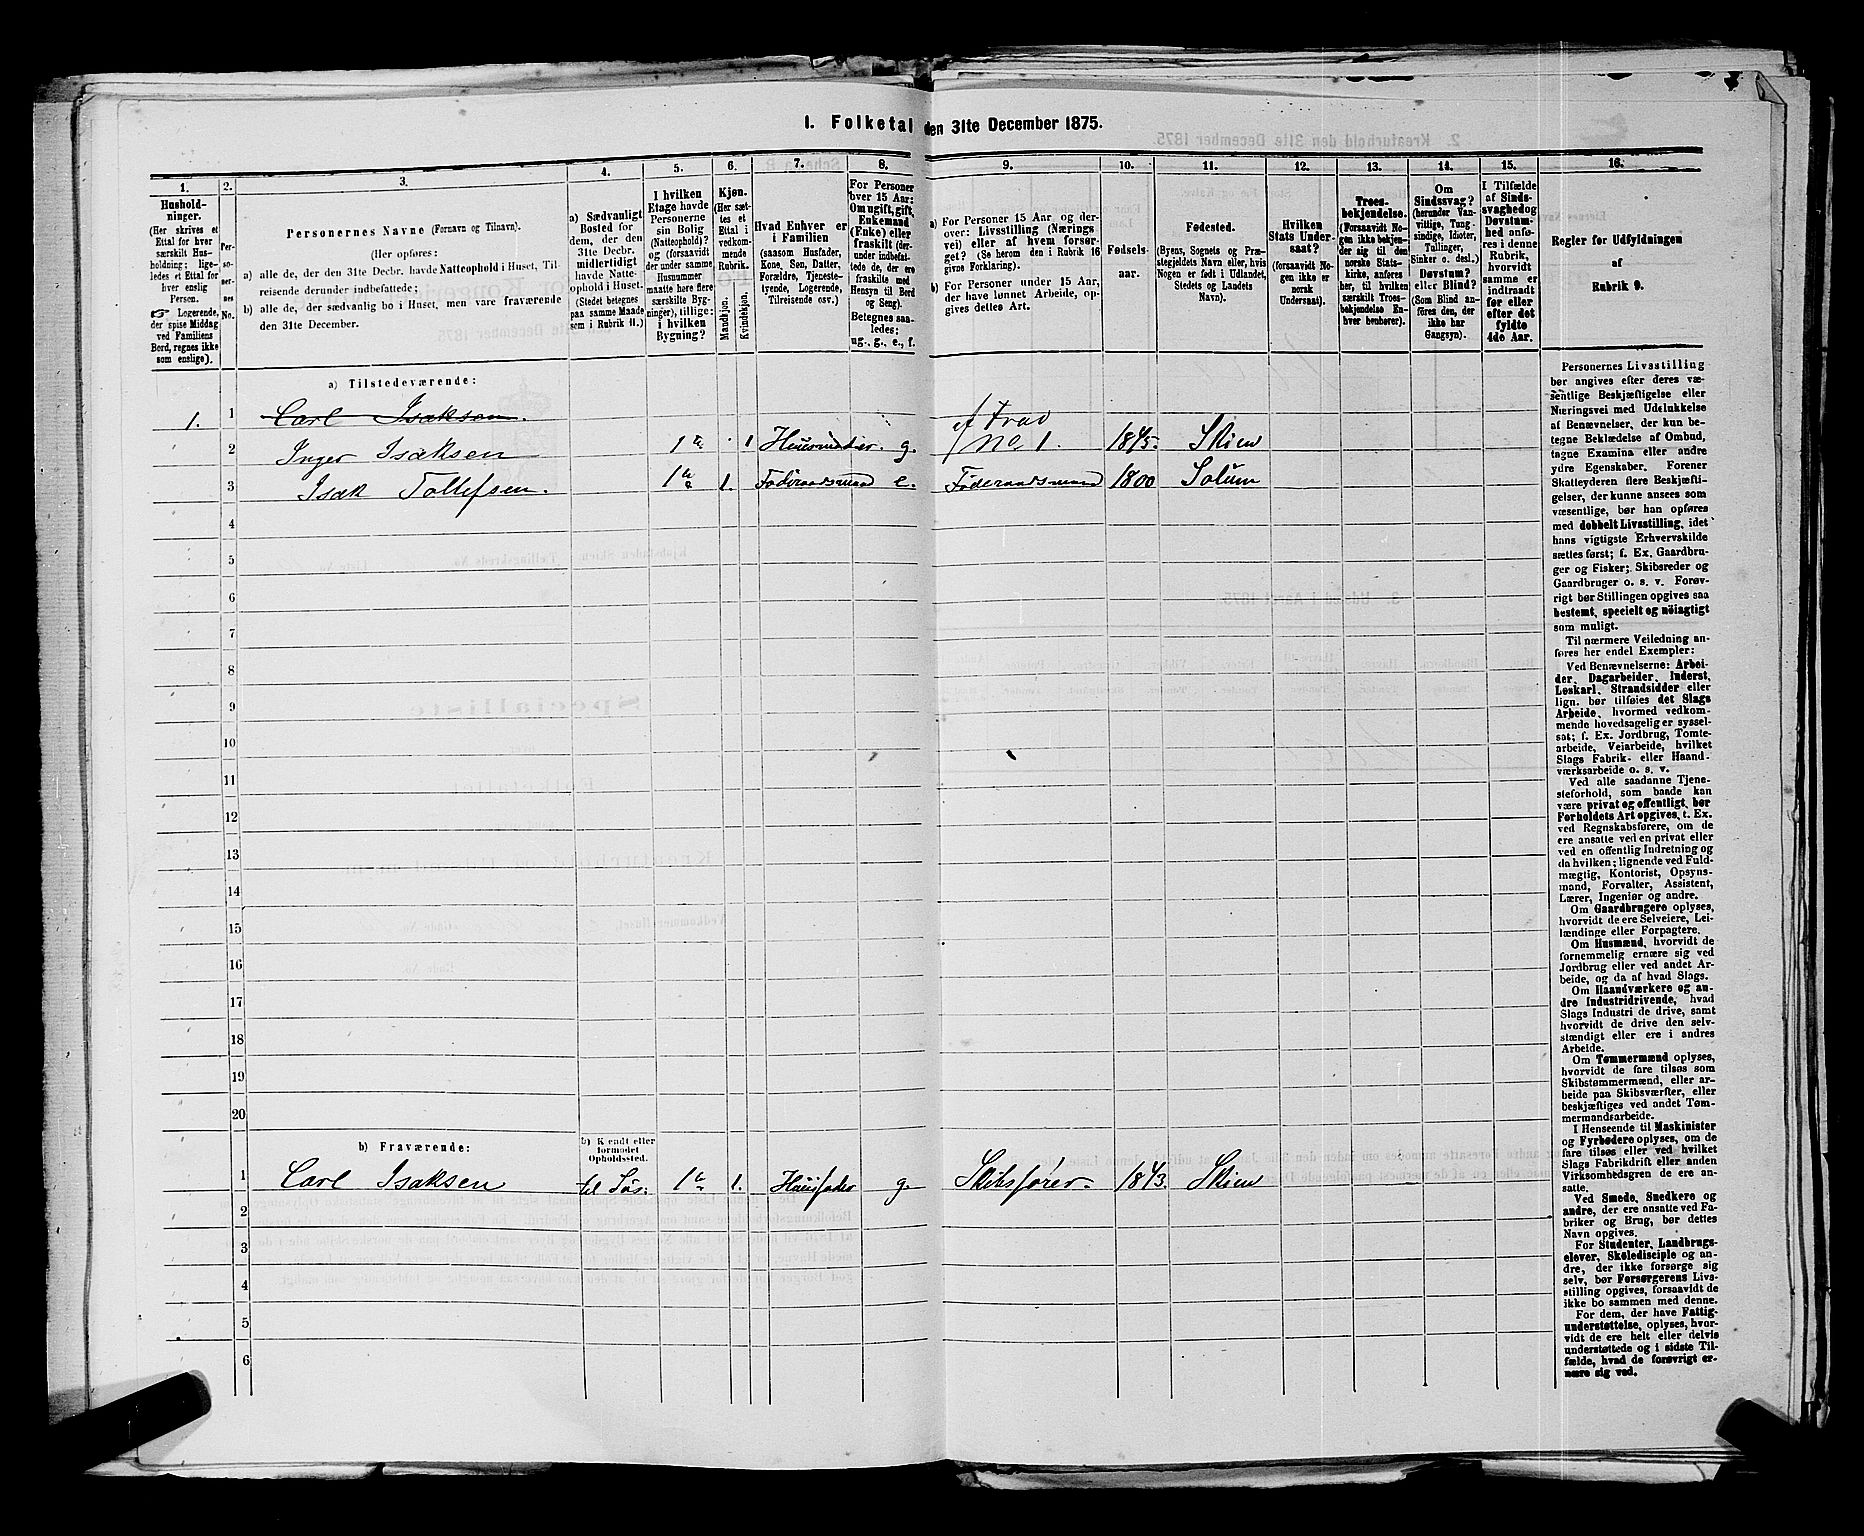 1. Folketal den 31te December 1875.
1.
2.
3.
4.
5.
6.
7.
8.
9.
10.
11.
12.
13.
14.
15.
16.
Hushold-
ninger.
(Her skrives et
Ettal for hver
særskilt Hus-
holdning; lige-
ledes et Ettal for
hver enslig
Person.
☞ Logerende,
der spise Middag
ved Familiens
Bord, regnes ikke
som enslige).
Per-
so-
ner-
nes
No.
Personernes Navne (Fornavn og Tilnavn).
(Her opføres:
a) alle de, der den 31te Decbr. havde Natteophold i Huset, Til-
reisende derunder indbefattede;
b) alle de, der sædvanlig bo i Huset, men vare fraværende
den 31te December.
a) Sædvanligt
Bosted for
dem, der den
31te Decbr.
midlertidigt
havde Natte-
ophold i Huset.
(Stedet betegnes
paa samme Maade
som i Rubrik 11.)
I hvilken
Etage havde
Personerne
sin Bolig
(Natteophold)?
og (forsaavidt
der under samme
Husnummer
maatte høre flere
særskilte Byg-
ninger), tillige:
i hvilken
Bygning?
Kjøn.
(Her sæt-
tes et
Ettal i
vedkom-
mende
Rubrik.
Mandkjøn.
Kvindekjøn.
Hvad Enhver er
i Familien
(saasom Husfader,
Kone, Søn, Datter,
Forældre, Tjeneste-
tyende, Logerende,
Tilreisende osv.)
For Personer
over 15 Aar:
Om ugift, gift,
Enkemand
(Enke) eller
fraskilt (der-
under indbefat-
tede de, der ere
fraskilte med
Hensyn til Bord
og Seng).
Betegnes saa-
ledes:
ug., g., e., f.
a) For Personer 15 Aar, og der-
over: Livsstilling (Nærings
vei) eller af hvem forsør-
get? (Se herom den i Rubrik 16
givne Forklaring).
b) For Personer under 15 Aar,
der have lønnet Arbeide, op-
gives dettes Art.
Fødsels-
aar.
Fødested.
(Byens, Sognets og Præ-
stegjeldets Navn eller, hvis
Nogen er født i Udlandet,
Stedets og Landets
Navn).
Hvilken
Stats Under-
saat?
(forsaavidt No-
gen ikke er
norsk
Undersaat).
Troes-
bekjendelse.
(Forsaavidt No-
gen ikke bekjen-
der sig til den
norske Stats-
kirke, anføres
her, til hvilken
særskilt Troes-
bekjendelse En-
hver henhører).
Om
Sindssvag?
(herunder Van-
vittige, Tung-
sindige, Idioter,
Tullinger,
Sinker o. desl.)
Døvstum?
eller Blind?
(Som Blind an-
føres den, der
ikke har
Gangsyn).
I Tilfælde
af Sinds-
svaghed og
Døvstum-
hed anfø-
res i denne
Rubrik,
hvorvidt
samme er
indtraadt
før eller
efter det
fyldte
4de Aar.
Regler for Udfyldningen
af
Rubrik 9.
a) Tilstedeværende:
1. 1 Carl Isaksen.
2 Inger Isaksen 1 1 Huusmoder. g. No 1. 1845. Skien
3 Isak Tollefsen. 1 1. Føderaadsmand e. Føderaadsmand 1800 Solum
4
5
6
7
8
9
10
11
12
13
14
15
16
17
18
19
20
b) Fraværende:
b) Kjendt eller
formodet
Opholdssted.
1 Carl Isaksen til Søs. 1 1. Huusfader g. Skibsfører. 1843. Skien
2
3
4
5
6
Personernes Livsstilling
bør angives efter deres væ-
sentlige Beskjæftigelse eller
Næringsvei med Udelukkelse
af Benævnelser, der kun be-
tegne Beklædelse af Ombud,
tagne Examina eller andre
ydre Egenskaber. Forener
Skatteyderen flere Beskjæfti-
gelser, der kunne ansees som
væsentlige, bør han opføres
med dobbelt Livsstilling, idet
hans vigtigste Erhvervskilde
sættes først; f. Ex. Gaardbru-
ger og Fisker; Skibsreder og
Gaardbruger o. s. v. Forøv-
rigt bør Stillingen opgives saa
bestemt, specielt og nöiagtigt
som muligt.
Til nærmere Veiledning an-
føres her endel Exempler:
Ved Benævnelserne: Arbei-
der, Dagarbeider, Inderst,
Løskarl, Strandsidder eller
lign. bør tilføies det Slags
Arbeide, hvormed vedkom-
mende hovedsagelig er syssel-
sat; f. Ex. Jordbrug, Tomte-
arbeide, Veiarbeide, hvilket
Slags Fabrik- eller Haand-
værksarbeide o. s. v.
Ved alle saadanne Tjene-
steforhold, som baade kan
være privat og offentligt, bør
Forholdets Art opgives, t. Ex.
ved Regnskabsførere, om de
ere ansatte ved en privat eller
ved en offentlig Indretning og
da hvilken; lignende ved Fuld-
mægtig, Kontorist, Opsyns-
mand, Forvalter, Assistent,
Lærer, Ingeniør og andre.
Om Gaardbrugere oplyses,
hvorvidt de ere Selveiere, Lei-
lændinge eller Forpagtere.
Om Husmænd, hvorvidt de
fornemmelig ernære sig ved
Jordbrug eller ved andet Ar-
beide, og da af hvad Slags.
Om Haandværkere og an-
dre Industridrivende, hvad
Slags Industri de drive, samt
hvorvidt de drive den selv-
stændigt eller ere i andres
Arbeide.
Om Tømmermænd oplyses,
hvorvidt de fare tilsøs som
Skibstømmermænd, eller ar-
beide paa Skibsværfter, eller
beskjæftiges ved andet Tøm-
mermandsarbeide.
I Henseende til Maskinister
og Fyrbødere oplyses, om de
fare tilsøs eller ved hvilket
Slags Fabrikdrift eller anden
Virksomhedsgren de ere an-
satte.
Ved Smede, Snedkere og
andre, der ere ansatte ved Fa-
briker og Brug, bør dettes
Navn opgives.
For Studenter, Landbrugs-
elever, Skoledisciple og an-
dre, der ikke forsørge sig
selv, bør Forsørgerens Livs-
stilling opgives, forsaavidt de
ikke bo sammen med denne.
For dem, der have Fattig-
understøttelse, oplyses, hvor-
vidt de ere helt eller delvis
understøttede og i sidste Til-
fælde, hvad de forøvrigt er-
nære sig ved.